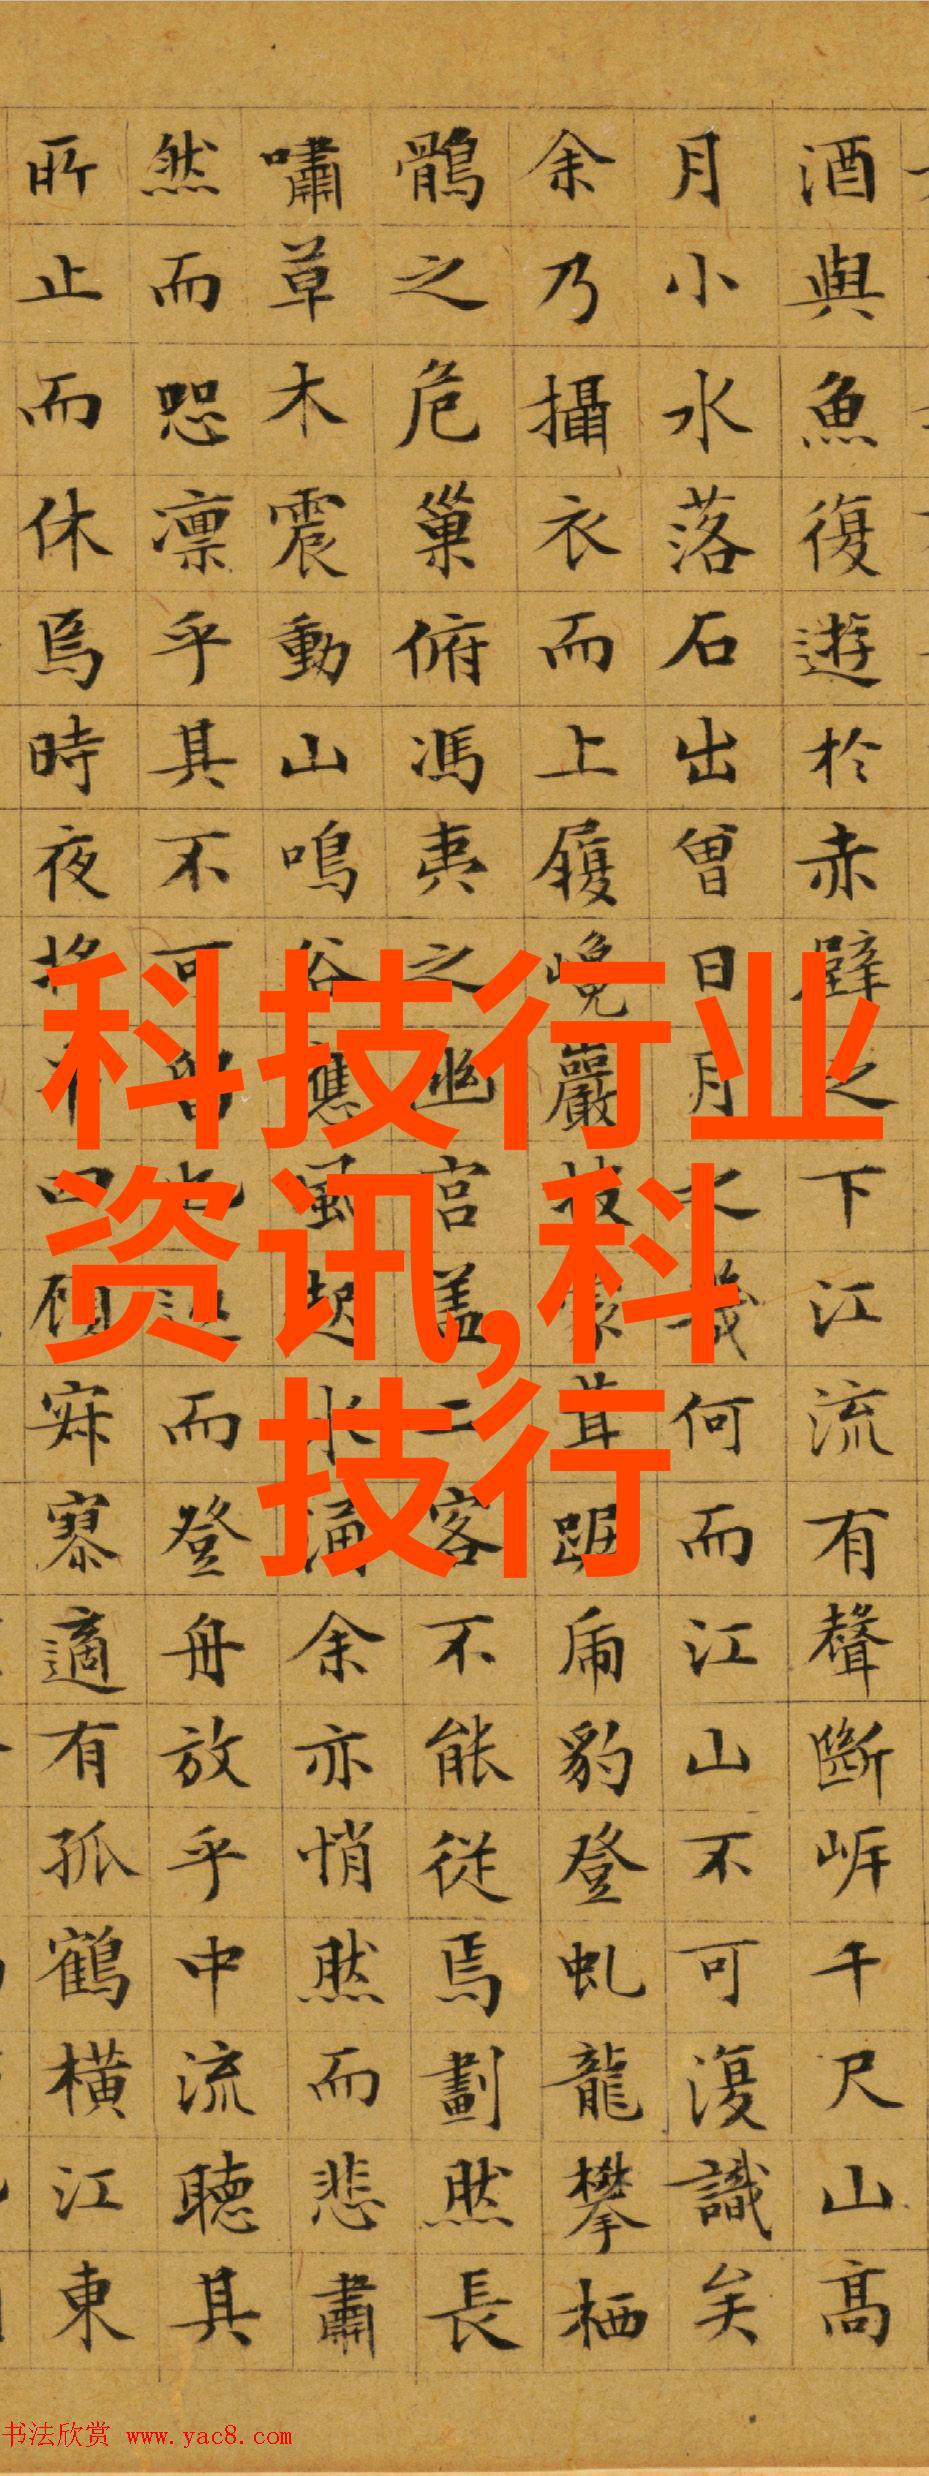 酒與魚復遊於赤壁之下江流有聲斷岸千尺山高
月小水落石出曾日月之幾何而江山不可復識矣
余乃攝衣而上履巉巖披蒙茸踞虎豹登虬龍攀栖
鶻之危巢俯馮夷之幽宮盖二客不能從焉劃然長
嘯草木震動山鳴谷應風起水涌余亦悄然而悲肅
然而恐凛乎其不可留也返而登舟放乎中流聽其
所止而休焉時夜將半四顧寂寥適有孤鶴橫江東
科技行业
资讯,科
技行
书法欣赏 www.yac8.com